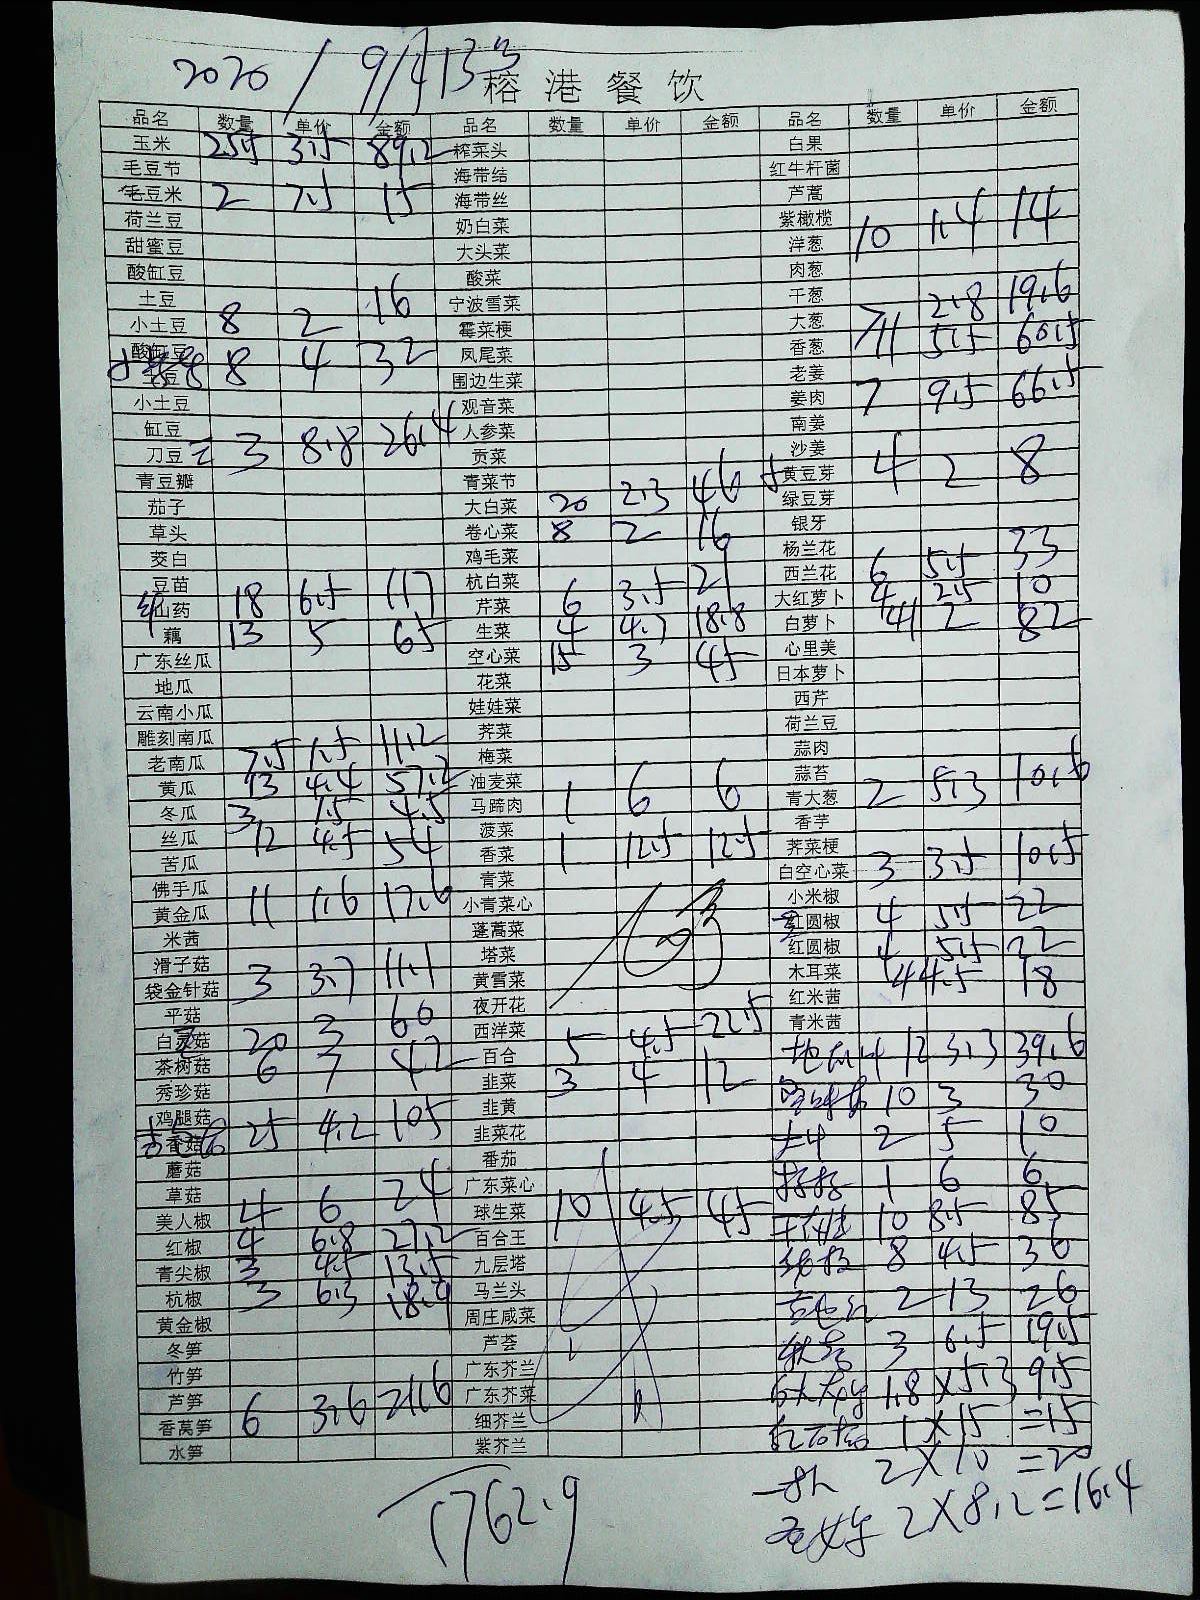 2020/9/4 133
榕港餐饮
品名 数量 单价 金额 品名 数量 单价 金额 品名 数量 单价 金额
玉米 25.5 3.5 89.2 榨菜头 白果
毛豆节 海带结 红牛杆菌
毛豆米 2 7.5 15 海带丝 芦蒿
荷兰豆 奶白菜 紫橄榄
甜蜜豆 大头菜 洋葱 10 1.4 14
酸缸豆 酸菜 肉葱
土豆 宁波雪菜 干葱
小土豆 8 2 16 霉菜梗 大葱 7 2.8 19.6
酸缸豆 凤尾菜 香葱 11 5.5 60.5
土豆 8 4 32 围边生菜 老姜
小土豆 观音菜 姜肉 7 9.5 66.5
缸豆 人参菜 南姜
刀豆 3 8.8 26.4 贡菜 沙姜
青豆瓣 青菜节 黄豆芽 4 2 8
茄子 大白菜 20 2.3 46 绿豆芽
草头 卷心菜 8 2 16 银牙
茭白 鸡毛菜 杨兰花
豆苗 杭白菜 西兰花 6 5.5 33
山药 18 6.5 117 芹菜 6 3.5 21 大红萝卜 4 2.5 10
藕 13 5 65 生菜 4 4.7 18.8 白萝卜 41 2 82
广东丝瓜 空心菜 15 3 45 心里美
地瓜 花菜 日本萝卜
云南小瓜 娃娃菜 西芹
雕刻南瓜 荠菜 荷兰豆
老南瓜 7.5 1.5 11.2 梅菜 蒜肉
黄瓜 13 4.4 57.2 油麦菜 1 6 6 蒜苔
冬瓜 3 1.5 4.5 马蹄肉 青大葱 2 5.3 10.6
丝瓜 12 4.5 54 菠菜 香芋
苦瓜 香菜 1 12.5 12.5 荠菜梗
佛手瓜 青菜 白空心菜 3 3.5 10.5
黄金瓜 11 1.6 17.6 小青菜心 小米椒
米茜 蓬蒿菜 红圆椒 4 5.5 22
滑子菇 塔菜 红圆椒 4 5.5 22
袋金针菇 3 3.7 11.1 黄雪菜 木耳菜 4 4.5 18
平菇 夜开花 红米茜
白灵菇 20 3 60 西洋菜 青米茜
茶树菇 6 7 42 百合 5 4.5 22.5 12 3.3 39.6
秀珍菇 韭菜 3 4 12 10 3 30
鸡腿菇 韭黄 2 5 10
香菇 25 4.2 105 韭菜花 1 6 6
蘑菇 番茄 10 8.5 85
草菇 广东菜心 8 4.5 36
美人椒 4 6 24 球生菜 10 4.5 45 2 13 26
红椒 4 6.8 27.2 百合王 3 6.5 19.5
青尖椒 3 4.5 13.5 九层塔 1.8×5.3 9.5
杭椒 3 6.3 18.9 马兰头 1×15=15
黄金椒 周庄咸菜
冬笋 芦荟
竹笋 广东芥兰
芦笋 广东芥菜
香莴笋 6 3.6 21.6 细芥兰
水笋 紫芥兰
2×10=20
2×8.2=16.4
1762.9